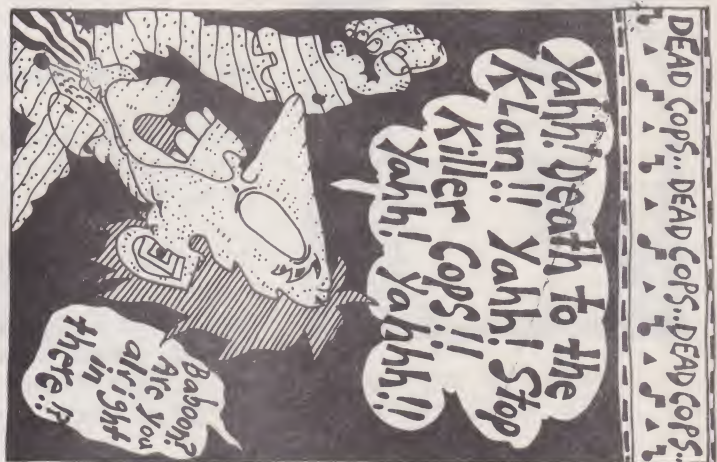 DEAD COPS.. DEAD COPS.. DEAD COPS..
Yahh! Death to the
Klan!! Yahh! Stop
Killer Cops!!
Yahh! Yahhh!!
Baboon?
Are you
alright
in
there!?